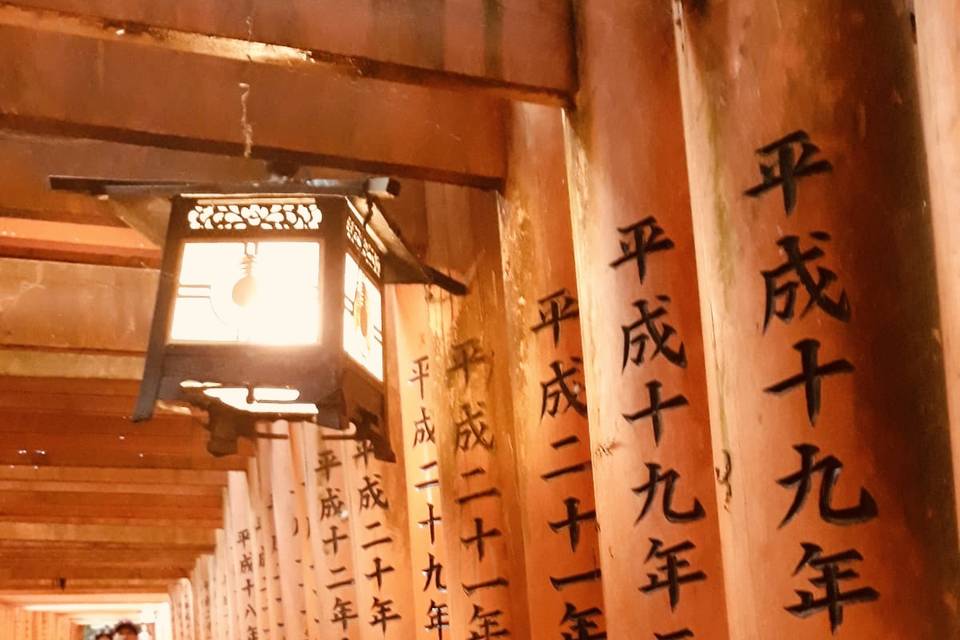 平成十九年
平成十九年
平成二十一年
平成二十一年
平成二十九年
平成二十年
平成十二年
平成十八年